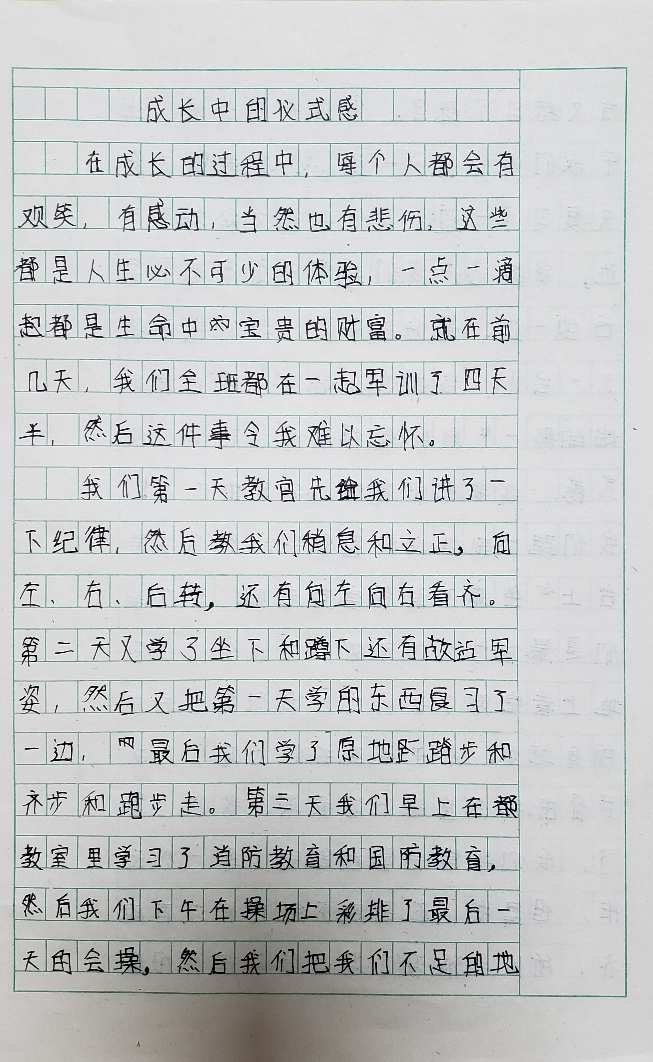 成长中的仪式感
在成长的过程中，每个人都会有
欢笑，有感动，当然也有悲伤，这些
都是人生必不可少的体验，一点一滴
起都是生命中的宝贵的财富。就在前
几天，我们全班都在一起军训了四天
半，然后这件事令我难以忘怀。
我们第一天教官先给我们讲了一
下纪律，然后教我们稍息和立正。向
左、右、后转，还有向左向右看齐。
第二天又学了坐下和蹲下还有站军
姿，然后又把第一天学的东西复习了
一边，最后我们学了原地踏步和
齐步和跑步走。第三天我们早上在
教室里学习了消防教育和国防教育，
然后我们下午在操场上彩排了最后一
天的会操，然后我们把我们不足的地